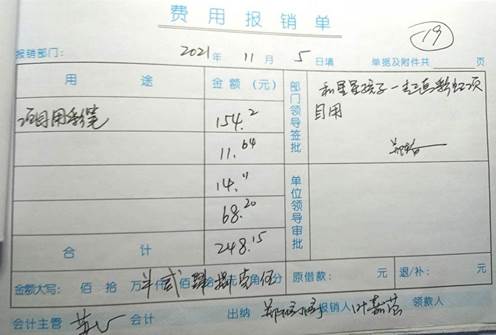 费用报销单
19
报销部门： 2021年 11月 5日填 单据及附件共 页
用途 金额（元）
项目用彩笔 154.2
11.64
14.11
68.20
合计 248.15
部门领导签批
和星星孩子一起画彩虹项
目用
单位领导审批
金额大写： 佰 拾 万 仟 贰佰 肆拾 捌元 壹角 伍分 原借款： 元 退/补： 元
会计主管 会计 出纳 报销人 叶嘉莹 领款人